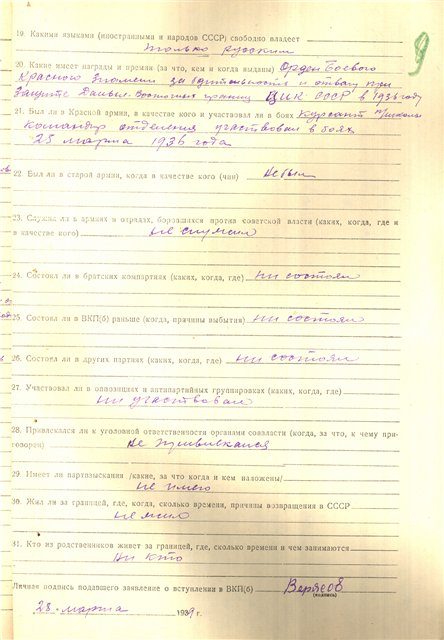 19. Какими языками (иностранными и народов СССР) свободно владеет
только русским
20. Какие имеет награды и премии (за что, кем и когда выданы) Орден Боевого
Красного Знамени за бдительность и отвагу при
защите Дальне-Восточных границ ЦИК СССР в 1936 году
21. Был ли в Красной армии, в качестве кого и участвовал ли в боях курсант
командир отделения участвовал в боях
25 марта 1936 года
22. Был ли в старой армии, когда и в качестве кого (чин) не был
23. Служил ли в армиях и отрядах, борющихся против советской власти (каких, когда, где и
в качестве кого) не служил
24. Состоял ли в братских компартиях (каких, когда, где) ни состоял
25. Состоял ли в ВКП(б) раньше (когда, причины выбытия) ни состоял
26. Состоял ли в других партиях (каких, когда, где) ни состоял
27. Участвовал ли в оппозициях и антипартийных группировках (каких, когда, где)
ни участвовал
28. Привлекался ли к уголовной ответственности органами соввласти (когда, за что, к чему при-
говорен) не
29. Имеет ли партвзыскания /какие, за что когда и кем наложены/
не имею
30. Жил ли за границей, где, когда, сколько времени, причины возвращения в СССР
не жил
31. Кто из родственников живет за границей, где, сколько времени и чем занимаются
ни кто
Личная подпись подавшего заявление о вступлении в ВКП(б) Верясов
(подпись)
28 марта 1939 г.